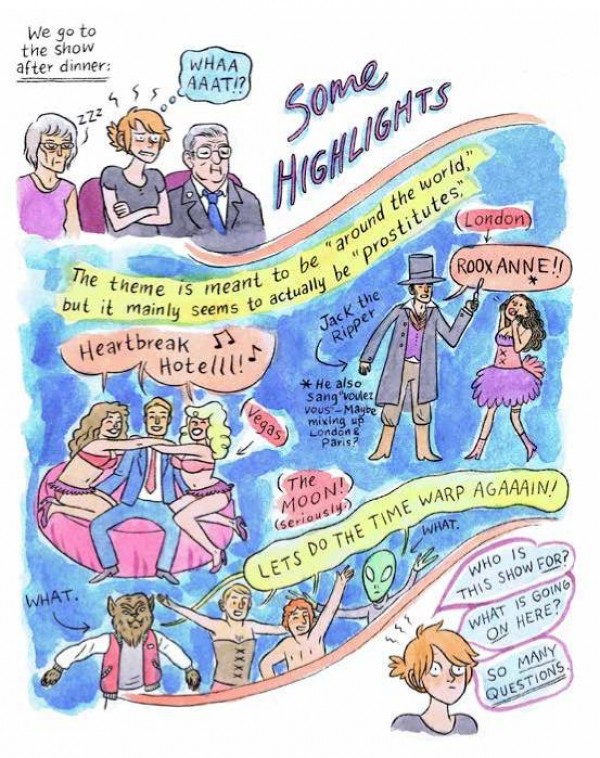 We go to
the show
after dinner:
WHAA
AAAT!?
zzz
Some
HIGHLIGHTS
The theme is meant to be "around the world,"
but it mainly seems to actually be "prostitutes".
London
ROOXANNE!!
*
Jack the
Ripper
* He also
sang "voulez
vous" - Maybe
mixing up
London &
Paris?
Heartbreak
Hotelll!
Vegas
(The
MOON!
(seriously.)
LETS DO THE TIME WARP AGAAAIN!
WHAT.
WHAT.
WHO IS
THIS SHOW FOR?
WHAT IS GOING
ON HERE?
SO MANY
QUESTIONS.